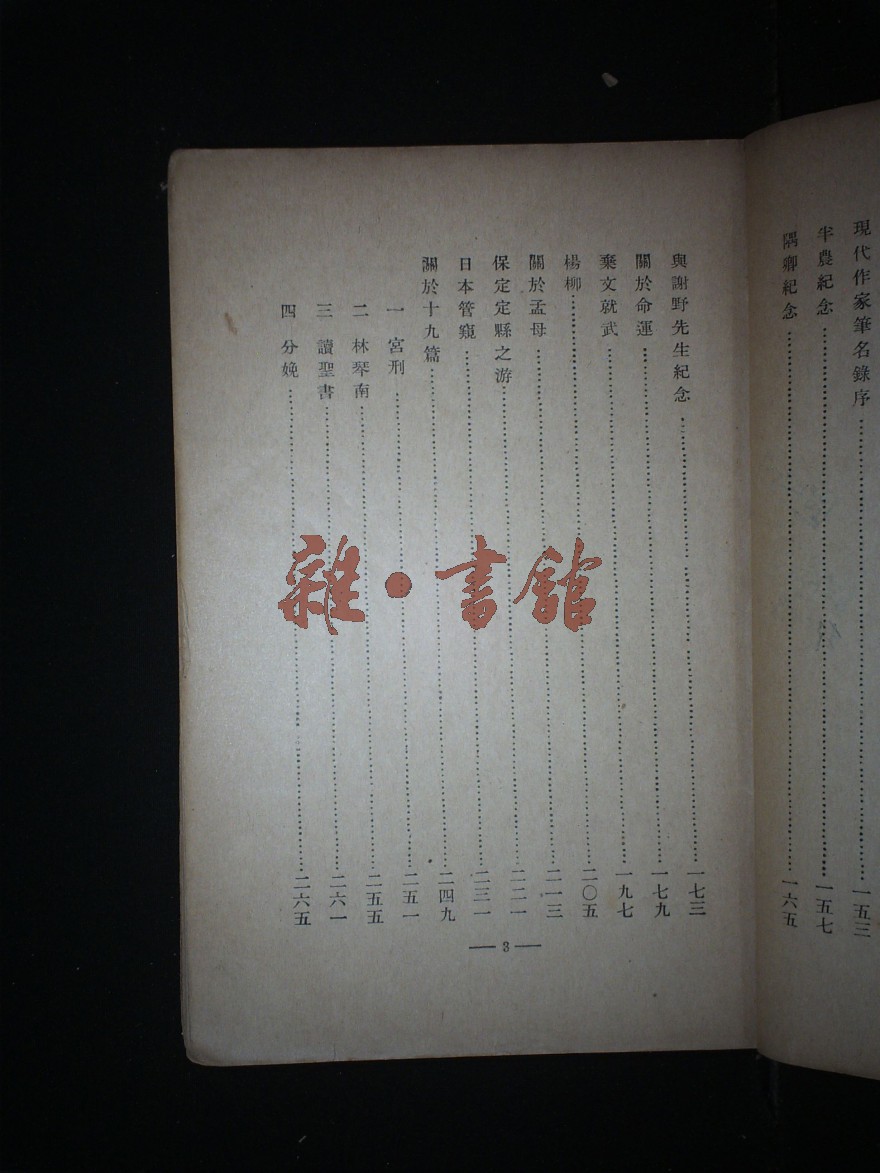 現代作家筆名錄序……一五三
半農紀念……一五七
隅卿紀念……一六五
與謝野先生紀念……一七三
關於命運……一七九
棄文就武……一九七
楊柳……二〇五
關於孟母……二一三
保定定縣之游……二二一
日本管窺……二三一
關於十九篇……二四九
一 宮刑……二五一
二 林琴南……二五五
三 讀聖書……二六一
四 分娩……二六五
— 3 —
雜·書館